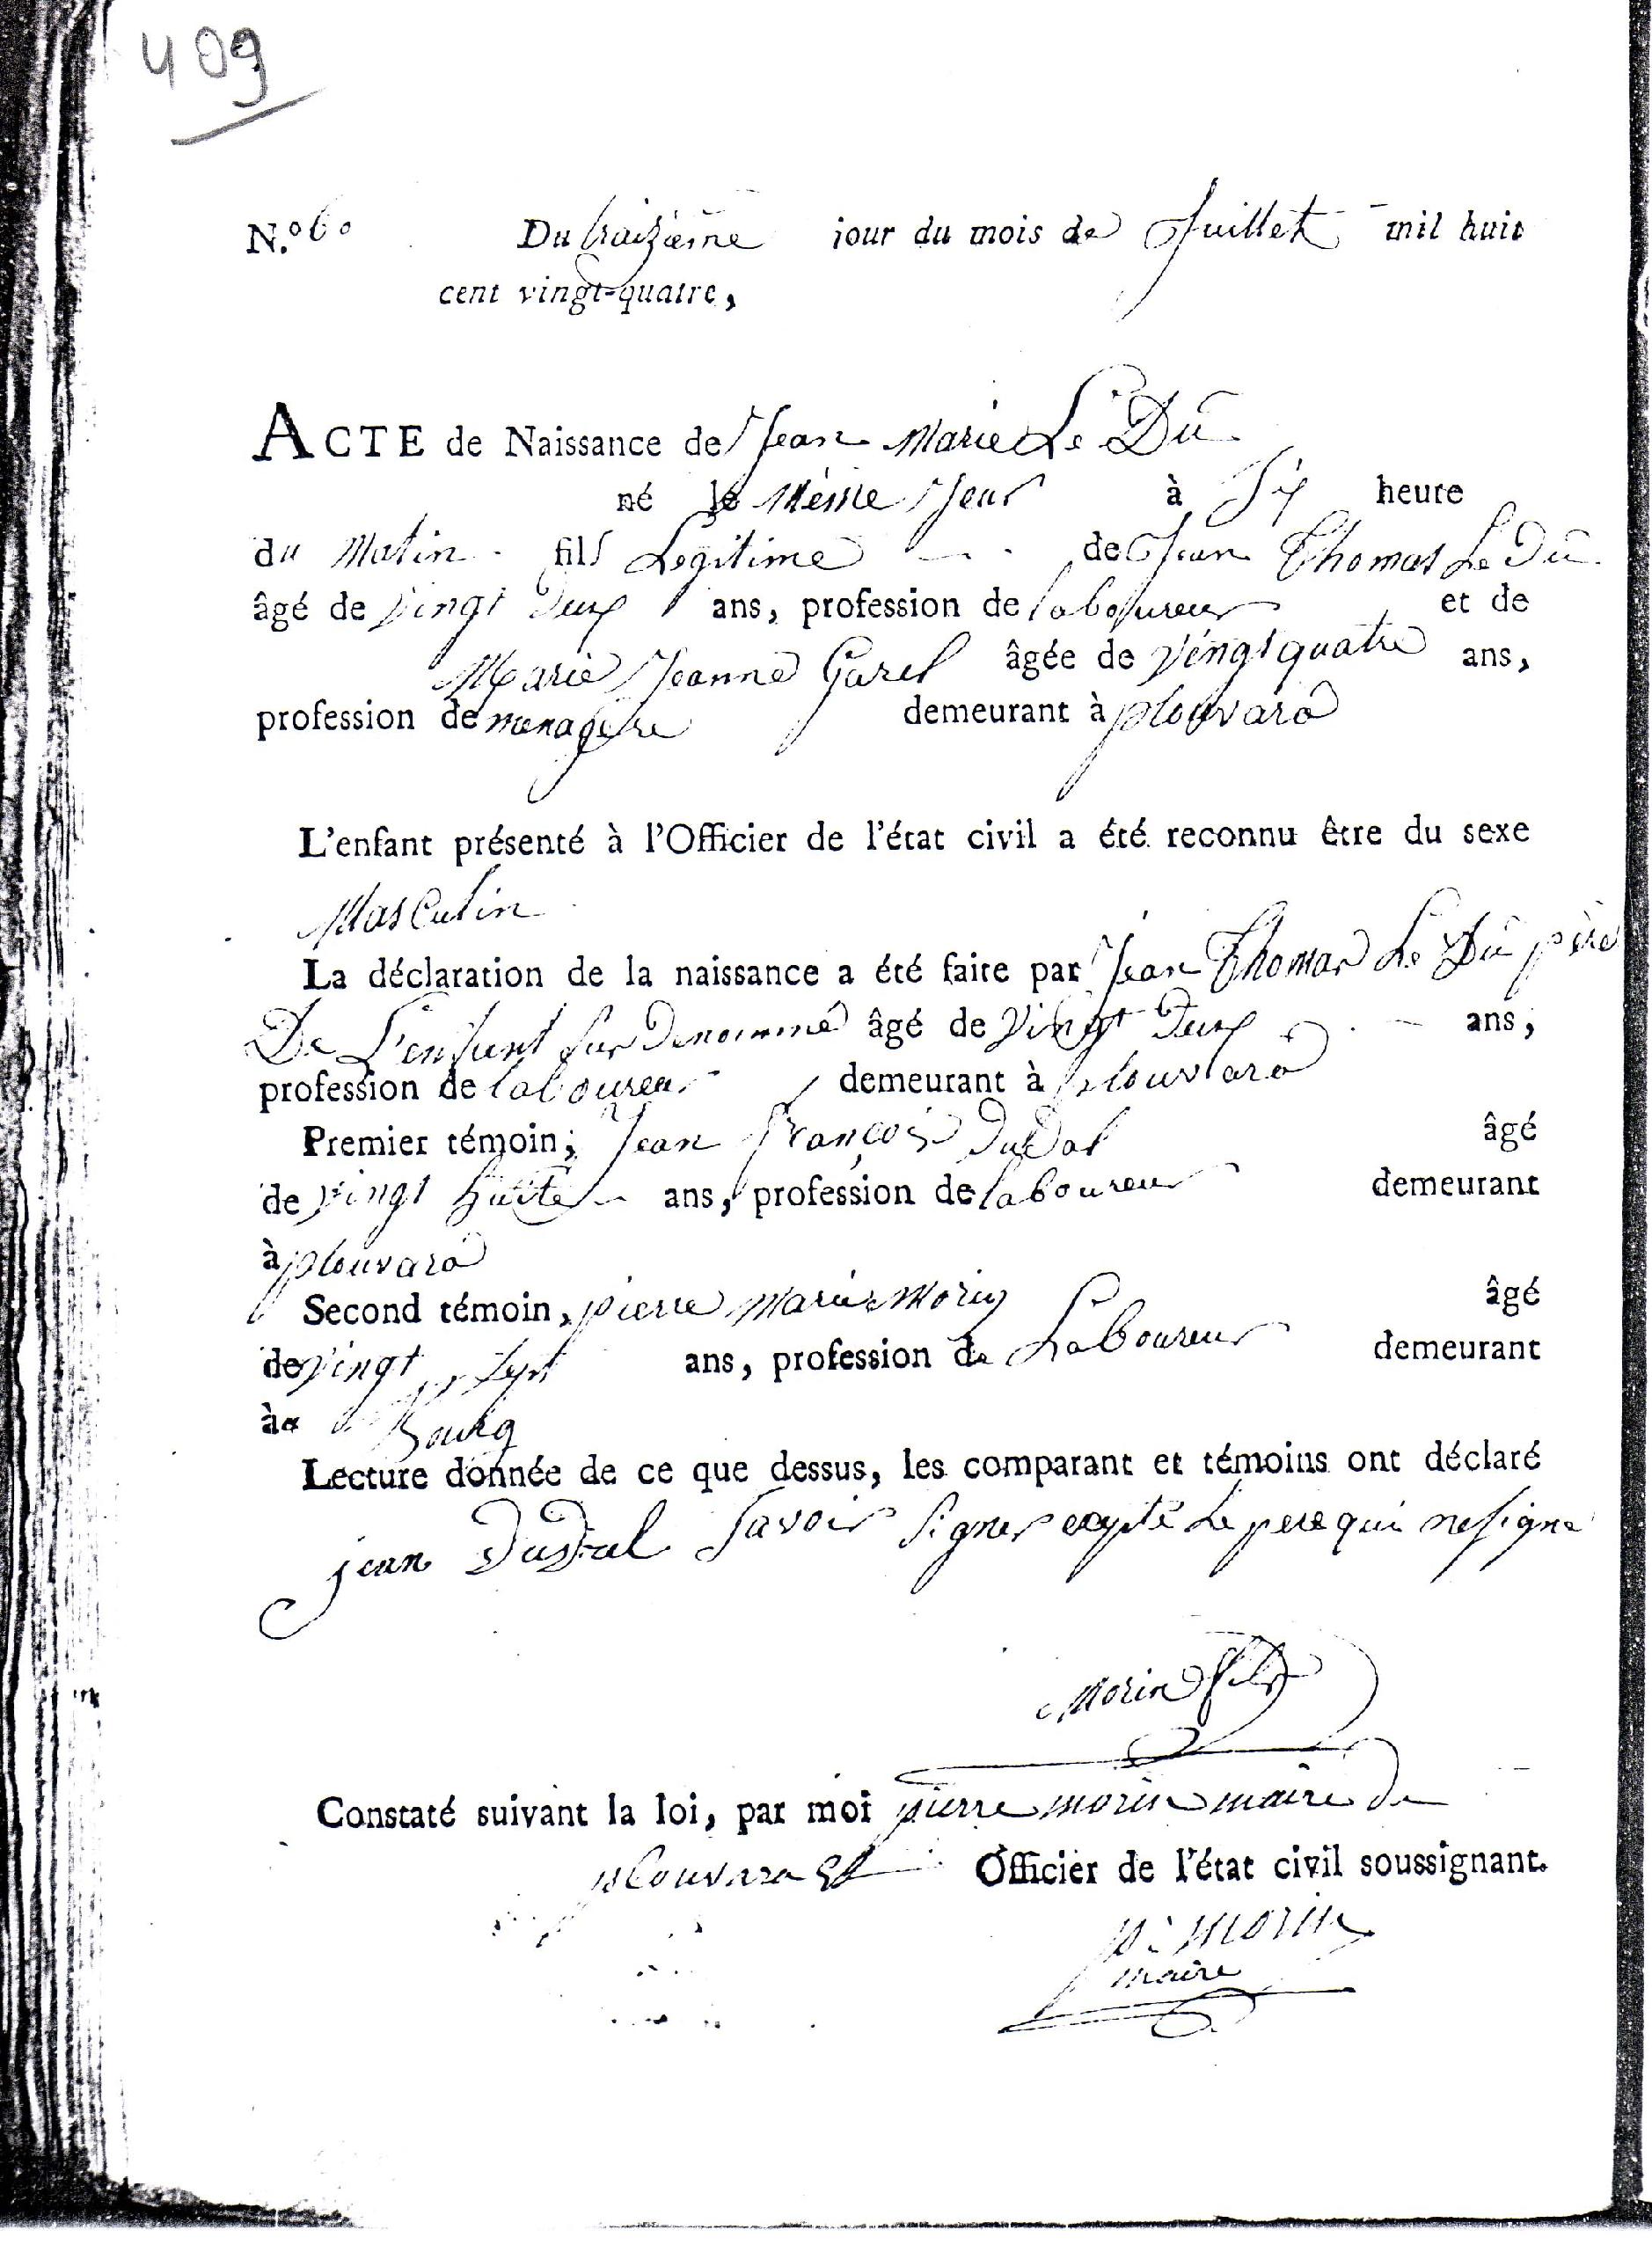 409
N.º 60 Du traizième jour du mois de Juillet mil huit
cent vingt-quatre,
ACTE de Naissance de Jean Marie Le Dû
né le même Jour à Six heure
du Matin fils Legitime de Jean Thomas Le Dû
âgé de vingt Deux ans, profession de laboureur et de
Marie Jeanne Garel âgée de vingt quatre ans,
profession de menagère demeurant à plouvara
L'enfant présenté à l'Officier de l'état civil a été reconnu être du sexe
Masculin
La déclaration de la naissance a été faite par Jean Thomas Le Dû père
De L'enfant sus Denommé âgé de Vingt Deux ans,
profession de laboureur demeurant à plouvara
Premier témoin, Jean François DuDal âgé
de vingt huite ans, profession de laboureur demeurant
à plouvara
Second témoin, pierre marie Morin âgé
de vingt sept ans, profession de Laboureur demeurant
à Bourg
Lecture donnée de ce que dessus, les comparant et témoins ont déclaré
Savoir Signer le pere qui ne signe
jean DuDal
Morin fils
Constaté suivant la loi, par moi pierre morin maire de
plouvara Officier de l'état civil soussignant.
p. Morin
maire